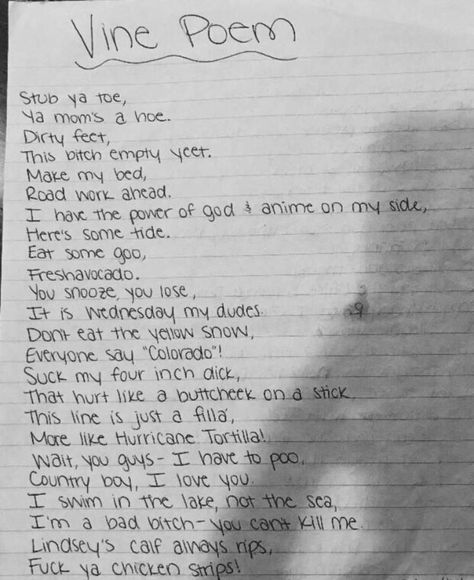 Vine Poem
Stub ya toe,
Ya mom's a hoe.
Dirty feet,
This bitch empty yeet.
Make my bed,
Road work ahead.
I have the power of god & anime on my side,
Here's some tide.
Eat some goo,
Freshavocado.
You snooze, you lose,
It is wednesday my dudes.
Dont eat the yellow snow,
Everyone say "Colorado"!
Suck my four inch dick,
That hurt like a buttcheek on a stick.
This line is just a filla,
More like Hurricane Tortilla!
Wait, you guys - I have to poo,
Country boy, I love you.
I swim in the lake, not the sea,
I'm a bad bitch - you cant kill me.
Lindsey's calf always rips,
Fuck ya chicken strips!